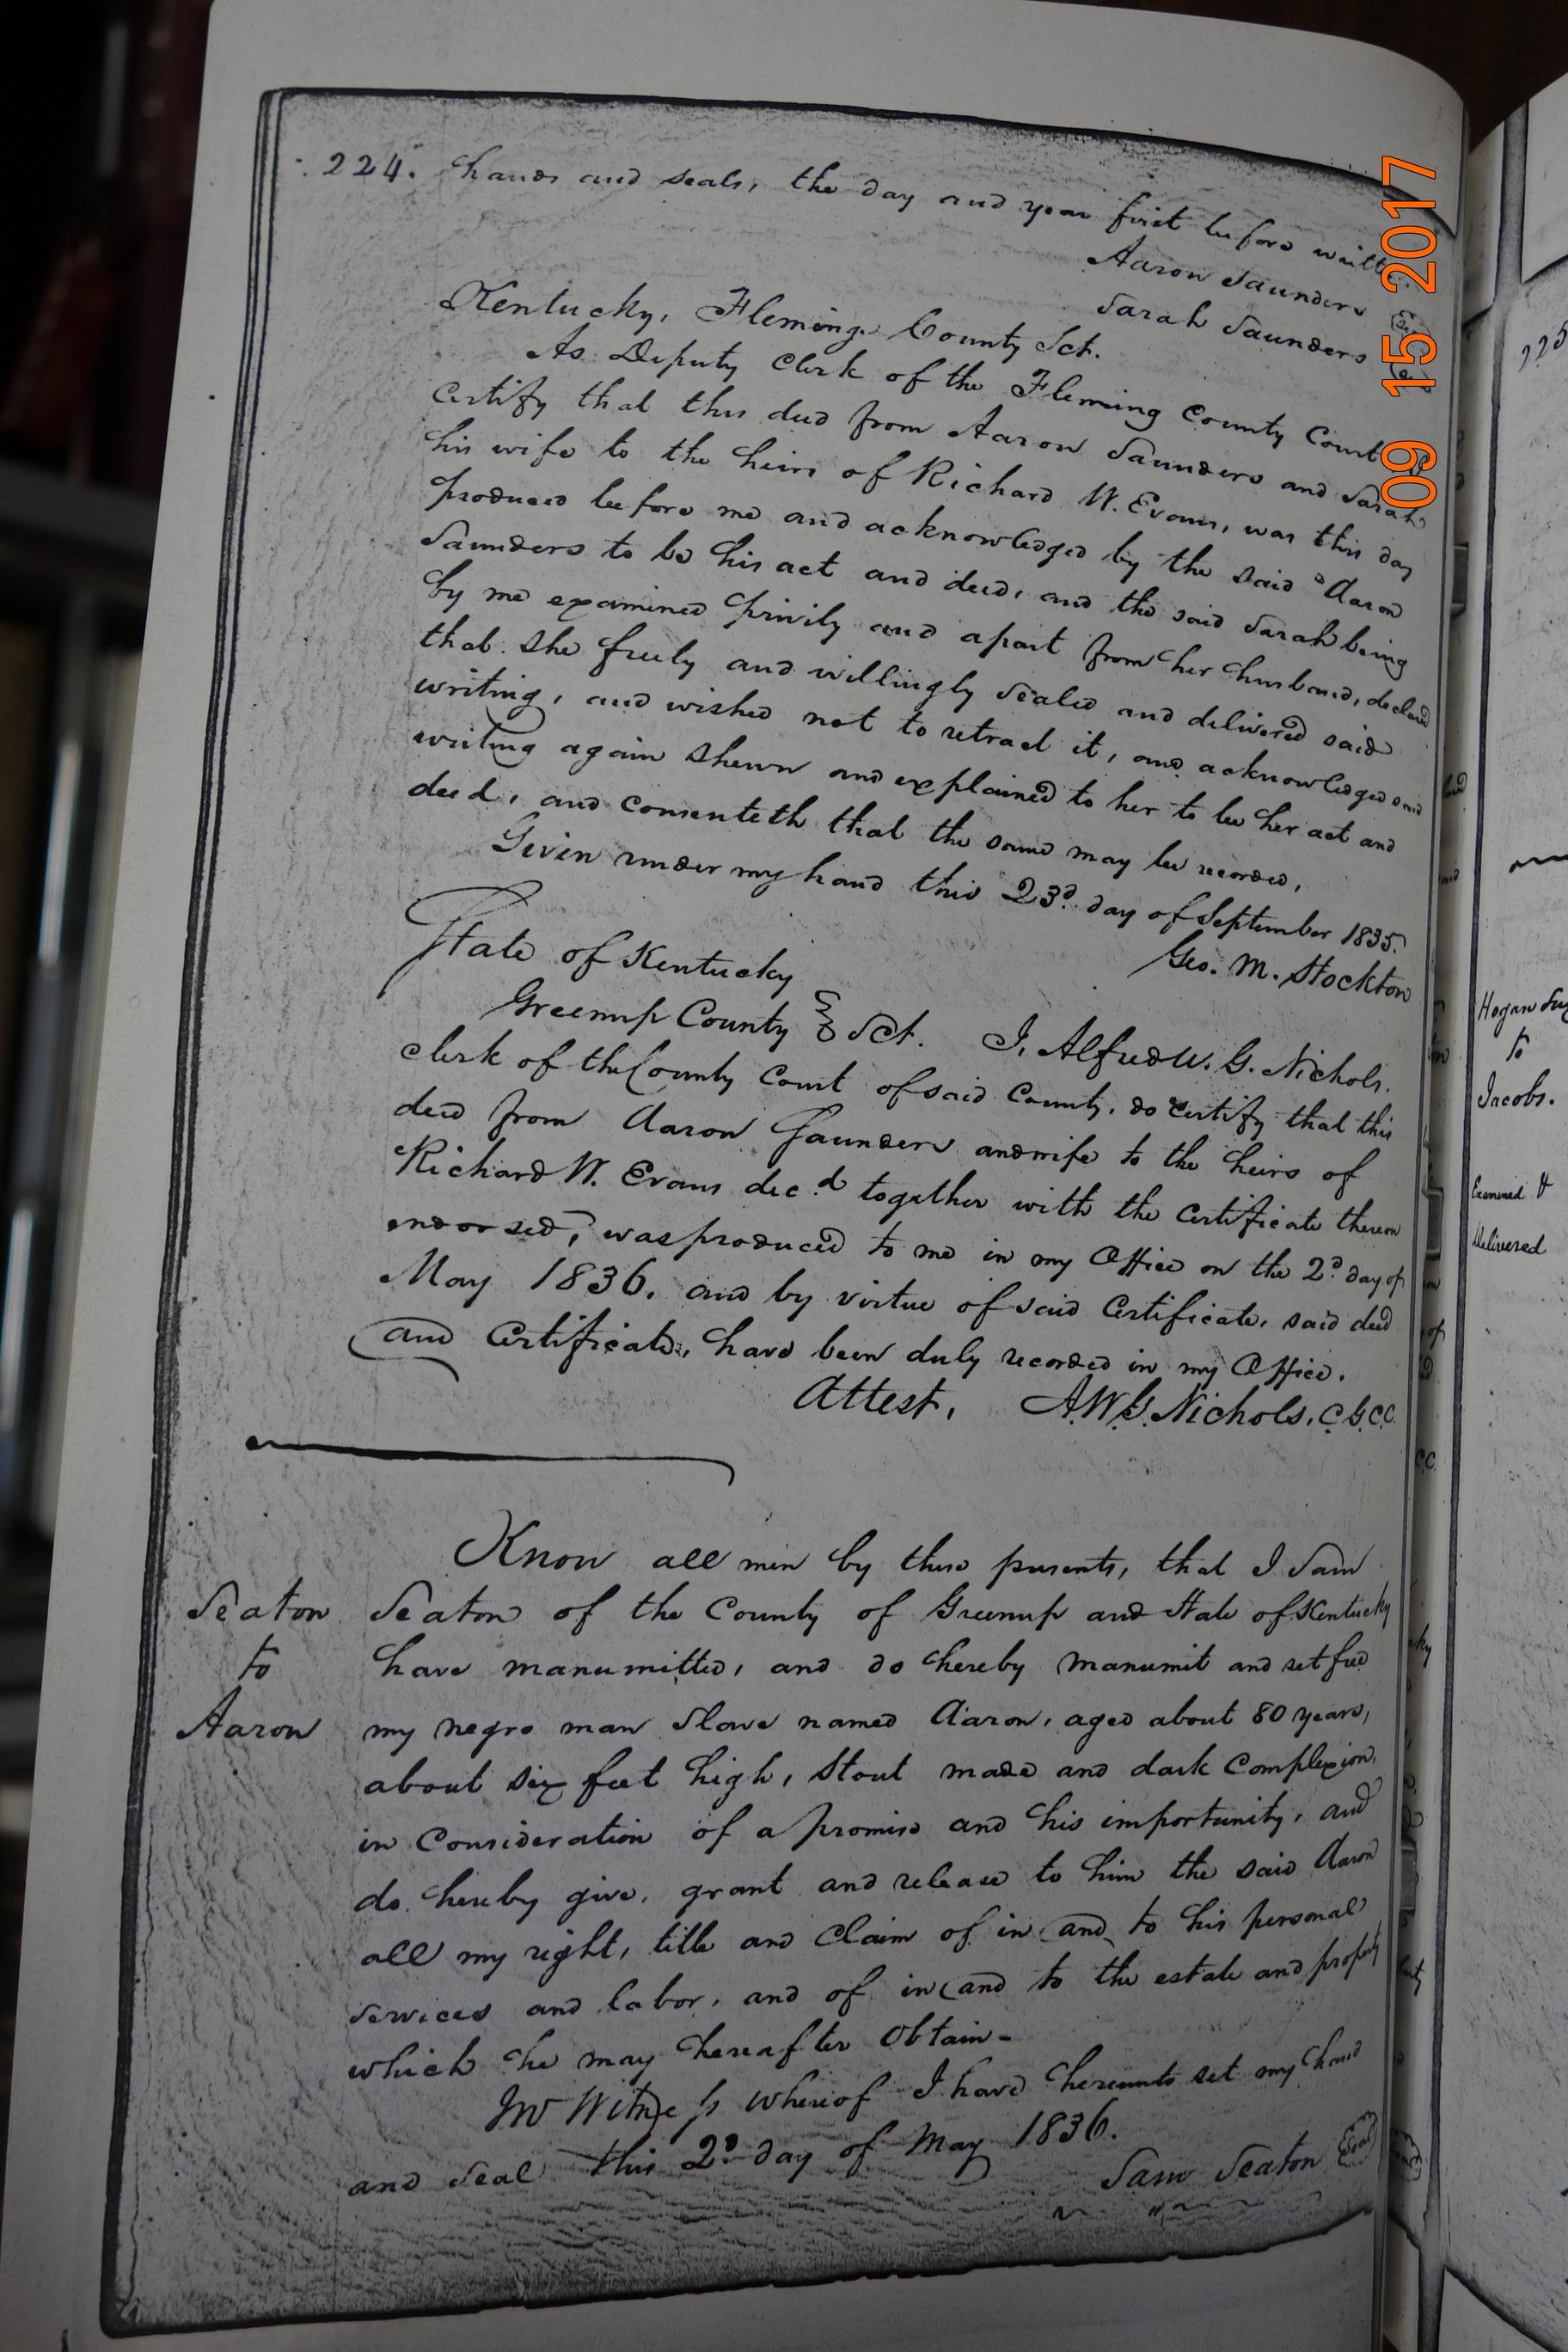 224. hands and seals, the day and year first before
Aaron Saunders
Sarah Saunders
Kentucky, Fleming County Sct.
As Deputy Clerk of the Fleming County Court
certify that this deed from Aaron Saunders and Sarah
his wife to the heirs of Richard W. Evans, was this day
produced before me and acknowledged by the said Aaron
Saunders to be his act and deed, and the said Sarah being
by me examined privily and apart from her husband, declared
that she freely and willingly sealed and delivered said
writing, and wished not to retract it, and acknowledged said
writing again shewn and explained to her to be her act and
deed, and consenteth that the same may be recorded,
Given under my hand this 23d. day of September 1835.
Geo. M. Stockton
State of Kentucky
Greenup County Sct. I, Alfred W. G. Nichols.
clerk of the County Court of said County, do certify that this
deed from Aaron Saunders and wife to the heirs of
Richard W. Evans dec.d together with the certificate thereon
endorsed, was produced to me in my Office on the 2d day of
May 1836. and by virtue of said Certificate, said deed
and Certificate, have been duly recorded in my Office.
Attest, A.W.G. Nichols, C.G.C.C.
Know all men by these presents, that I Sam
Seaton Seaton of the County of Greenup and State of Kentucky
to have manumitted, and do hereby manumit and set free
Aaron my negro man Slave named Aaron, aged about 80 years,
about six feet high, Stout made and dark Complexion,
in Consideration of a promise and his importunity, and
do hereby give, grant and release to him the said Aaron
all my right, title and Claim of in and to his personal
services and labor, and of in and to the estate and property
which he may hereafter Obtain-
In Witness whereof I have hereunto set my hand
and Seal this 2d day of May 1836.
Sam Seaton Seal
09 15 2017
225
to
Jacobs.
Examined &
delivered